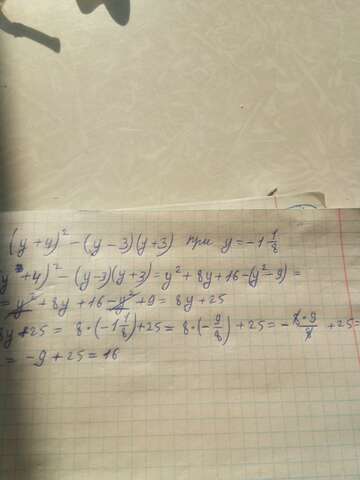 (y+4)² - (y-3)(y+3) при y = -1 1/8
(y+4)² - (y-3)(y+3) = y² + 8y + 16 - (y² - 9) =
= y² + 8y + 16 - y² + 9 = 8y + 25
8y + 25 = 8 · (-1 1/8) + 25 = 8 · (-9/8) + 25 = - 8·9/8 + 25 =
= -9 + 25 = 16